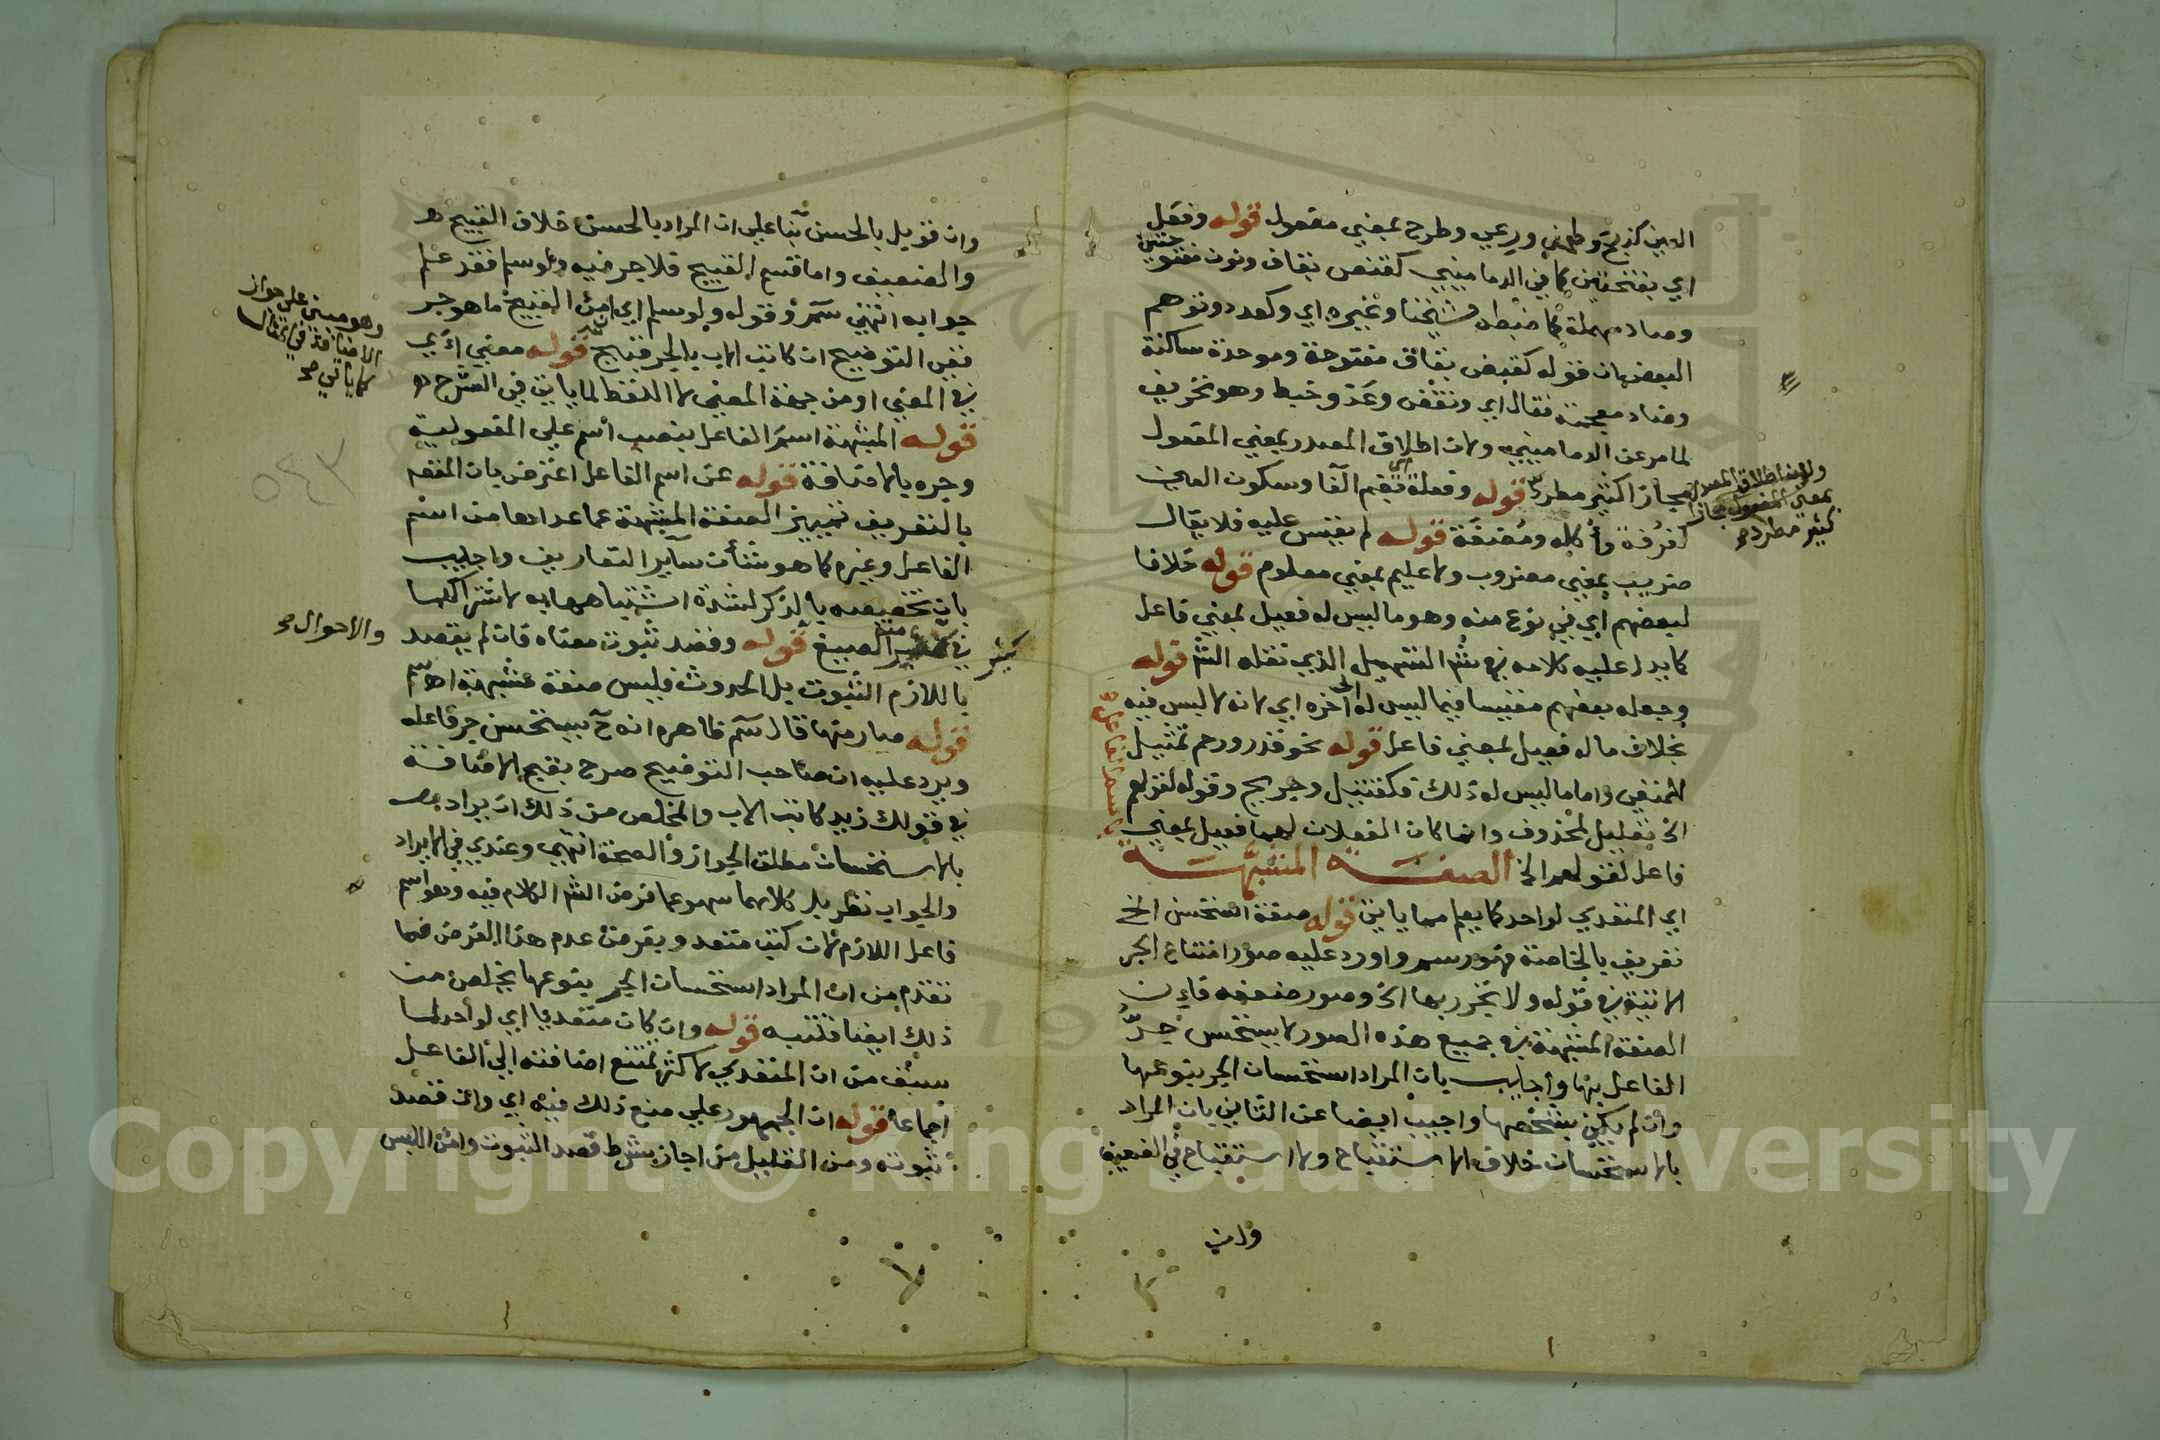 العين كذبح وطحن ورعي وطرح بمعنى مفعول قوله وفعل
اي بفتحتين كما في الدماميني كقنص بقاف ونون مفتوحتين
وصاد مهملة كما ضبطه شيخنا وغيره اي وكعدد وتوهم
البعض ان قوله كقبض بقاف مفتوحة وموحدة ساكنة
وضاد معجمة فقال اي ونقض وعد وخبط وهو تحريف
لما مر عن الدماميني ولان اطلاق المصدر بمعنى المفعول
مجاز اكثر مطرد قوله وفعلة بضم الفا وسكون العين
كغرفة وأكلة ومضغة قوله لم يقس عليه فلا يقال
ضريب بمعنى مضروب ولا عليم بمعنى معلوم قوله خلافا
لبعضهم اي في نوع منه وهو ما ليس له فعيل بمعنى فاعل
كما يدل عليه كلامه في شرح التسهيل الذي نقله الش قوله
وجعله بعضهم مقيسا فيما ليس له الى اخره اي لانه لا لبس فيه
بخلاف ما له فعيل بمعنى فاعل قوله نحو قدر ورحم تمثيل
للمنفي واما ما ليس له ذلك فكقتيل وجريح وقوله لقولهم
الخ تعليل لمحذوف وانما كان الفعلان لهما فعيل بمعنى
فاعل لقولهم الخ الصفة المشبهة
باسم الفاعل
اي المتعدي لواحد كما يعلم مما ياتي قوله صفة استحسن الخ
تعريف بالخاصة فهو رسم واورد عليه صور امتناع الجر
الاتية في قوله ولا تجرر بها الخ وصور ضعفه فان
الصفة المشبهة في جميع هذه الصور لا يستحسن جر
الفاعل بها واجيب بان المراد استحسان الجر بنوعها
وان لم يكن بشخصها واجيب ايضا عن الثاني بان المراد
بالاستحسان خلاف الاستقباح ولا استقباح في الضعيف
وان
وايضا اطلاق المصدر
بمعنى المفعول مجازا
كثير مطرد صح
وان قوبل بالحسن بنا على ان المراد بالحسن خلاف القبيح
والضعيف واما قسم القبيح فلا جر فيه ولو سلم فقد علم
جوابه انتهى سم وقوله ولو سلم اي ان من القبيح ما هو جر
ففي التوضيح ان كاتب الاب بالجر قبيح قوله معنى اي
في المعنى او من جهة المعنى لا اللفظ لما ياتي في الشرح
قوله المشبهة اسم الفاعل بنصب اسم على المفعولية
وجره بالاضافة قوله عن اسم الفاعل اعترض بان القصد
بالتعريف تمييز الصفة المشبهة عما عداها من اسم
الفاعل وغيره كما هو شأن سائر التعاريف واجيب
بان تخصيصه بالذكر لشدة اشتباهها به لاشتراكهما
في كثير من الصيغ قوله وقصد ثبوت معناه فان لم يقصد
باللازم الثبوت بل الحدوث فليس صفة مشبهة اهـ سم
قوله صار منها قال سم ظاهره انه ح يستحسن جر فاعله
ويرد عليه ان صاحب التوضيح صرح بقبح الاضافة
في قولك زيد كاتب الاب والمخلص من ذلك ان يراد
بالاستحسان مطلق الجواز والصحة انتهى وعندي في الايراد
والجواب نظر بل كلاهما سهو عما فرض الش الكلام فيه وهو اسم
فاعل اللازم لان كتب متعد وبفرض عدم هذا الفرض فما
تقدم من ان المراد استحسان الجر بنوعها يخلص من
ذلك ايضا فتنبه قوله وان كان متعديا اي لواحد لما
سبق من ان المتعدي لاكثر تمتنع اضافته الى الفاعل
اجماعا قوله ان الجمهور على منع ذلك فيه اي وان قصد
ثبوته ومن القليل من اجاز بشرط قصد الثبوت وامن اللبس
وهو مبني على جواز
الاضافة في المثال
كما ياتي صح
والاحوال صح
كثير
٥٤٣